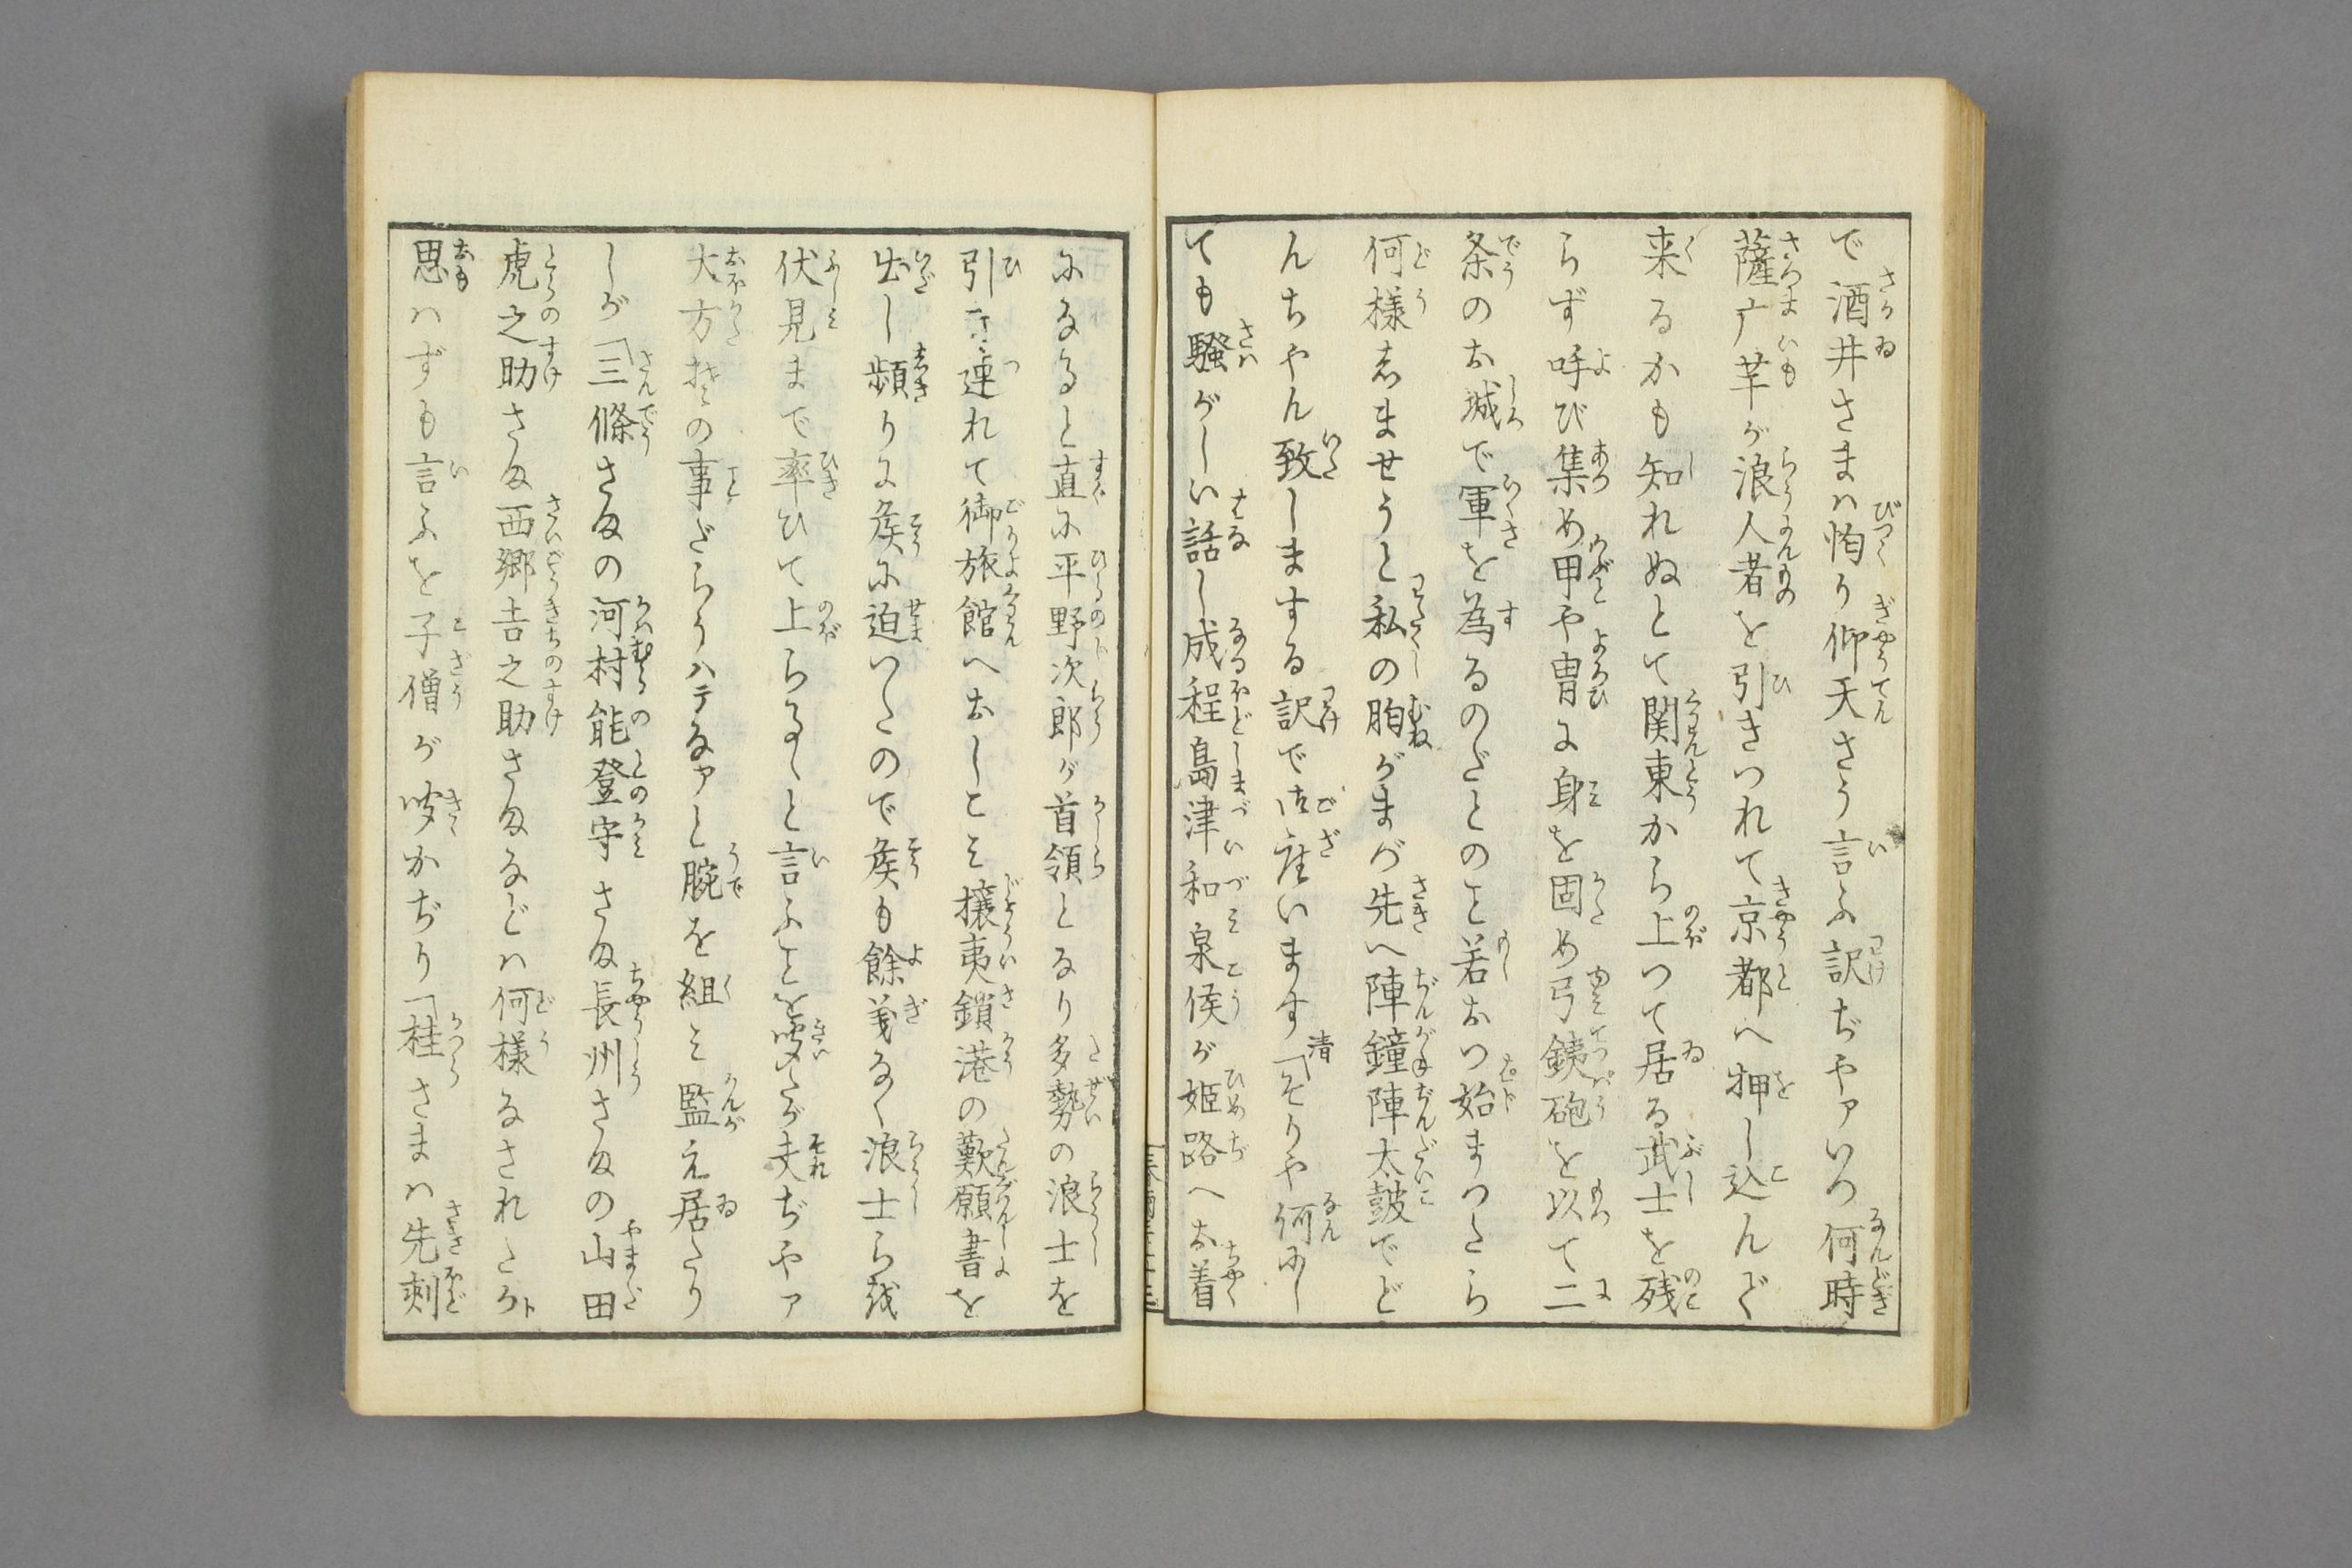 で酒井さまハ恟り仰天さう言ふ訳ぢやアいつ何時
薩广芋が浪人者を引きつれて京都へ押し込んで
来るかも知れぬとて関東から上つて居る武士を残
らず呼び集め甲や冑に身を固め弓銕砲を以て二
条のお城で軍を為るのだとのこと若おつ始まつたら
何様志ませうと私の胸がまづ先へ陣鐘陣太皷でど
んちやん致しまする訳で御座います清「そりや何にし
ても騒がしい話し成程島津和泉侯が姫路へお着
になると直に平野次郎が首領となり多勢の浪士を
引き連れて御旅館へおしこみ攘夷鎖港の歎願書を
出し頻りに矦に迫いたので矦も餘義なく浪士ら越
伏見まで率ひて上らるゝと言ふことを聞いたが夫ぢやア
大方其の事だらうハテなアと腕を組み監え居たり
しが「三條さまの河村能登守さま長州さまの山田
虎之助さま西郷吉之助さまなどハ何様なされたろト
思ハずも言ふを子僧が聞かぢり「桂さまハ先刻